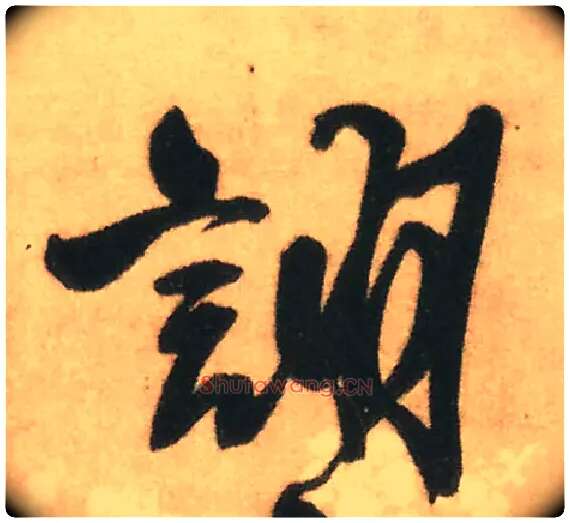 詡
Shufawang.CN